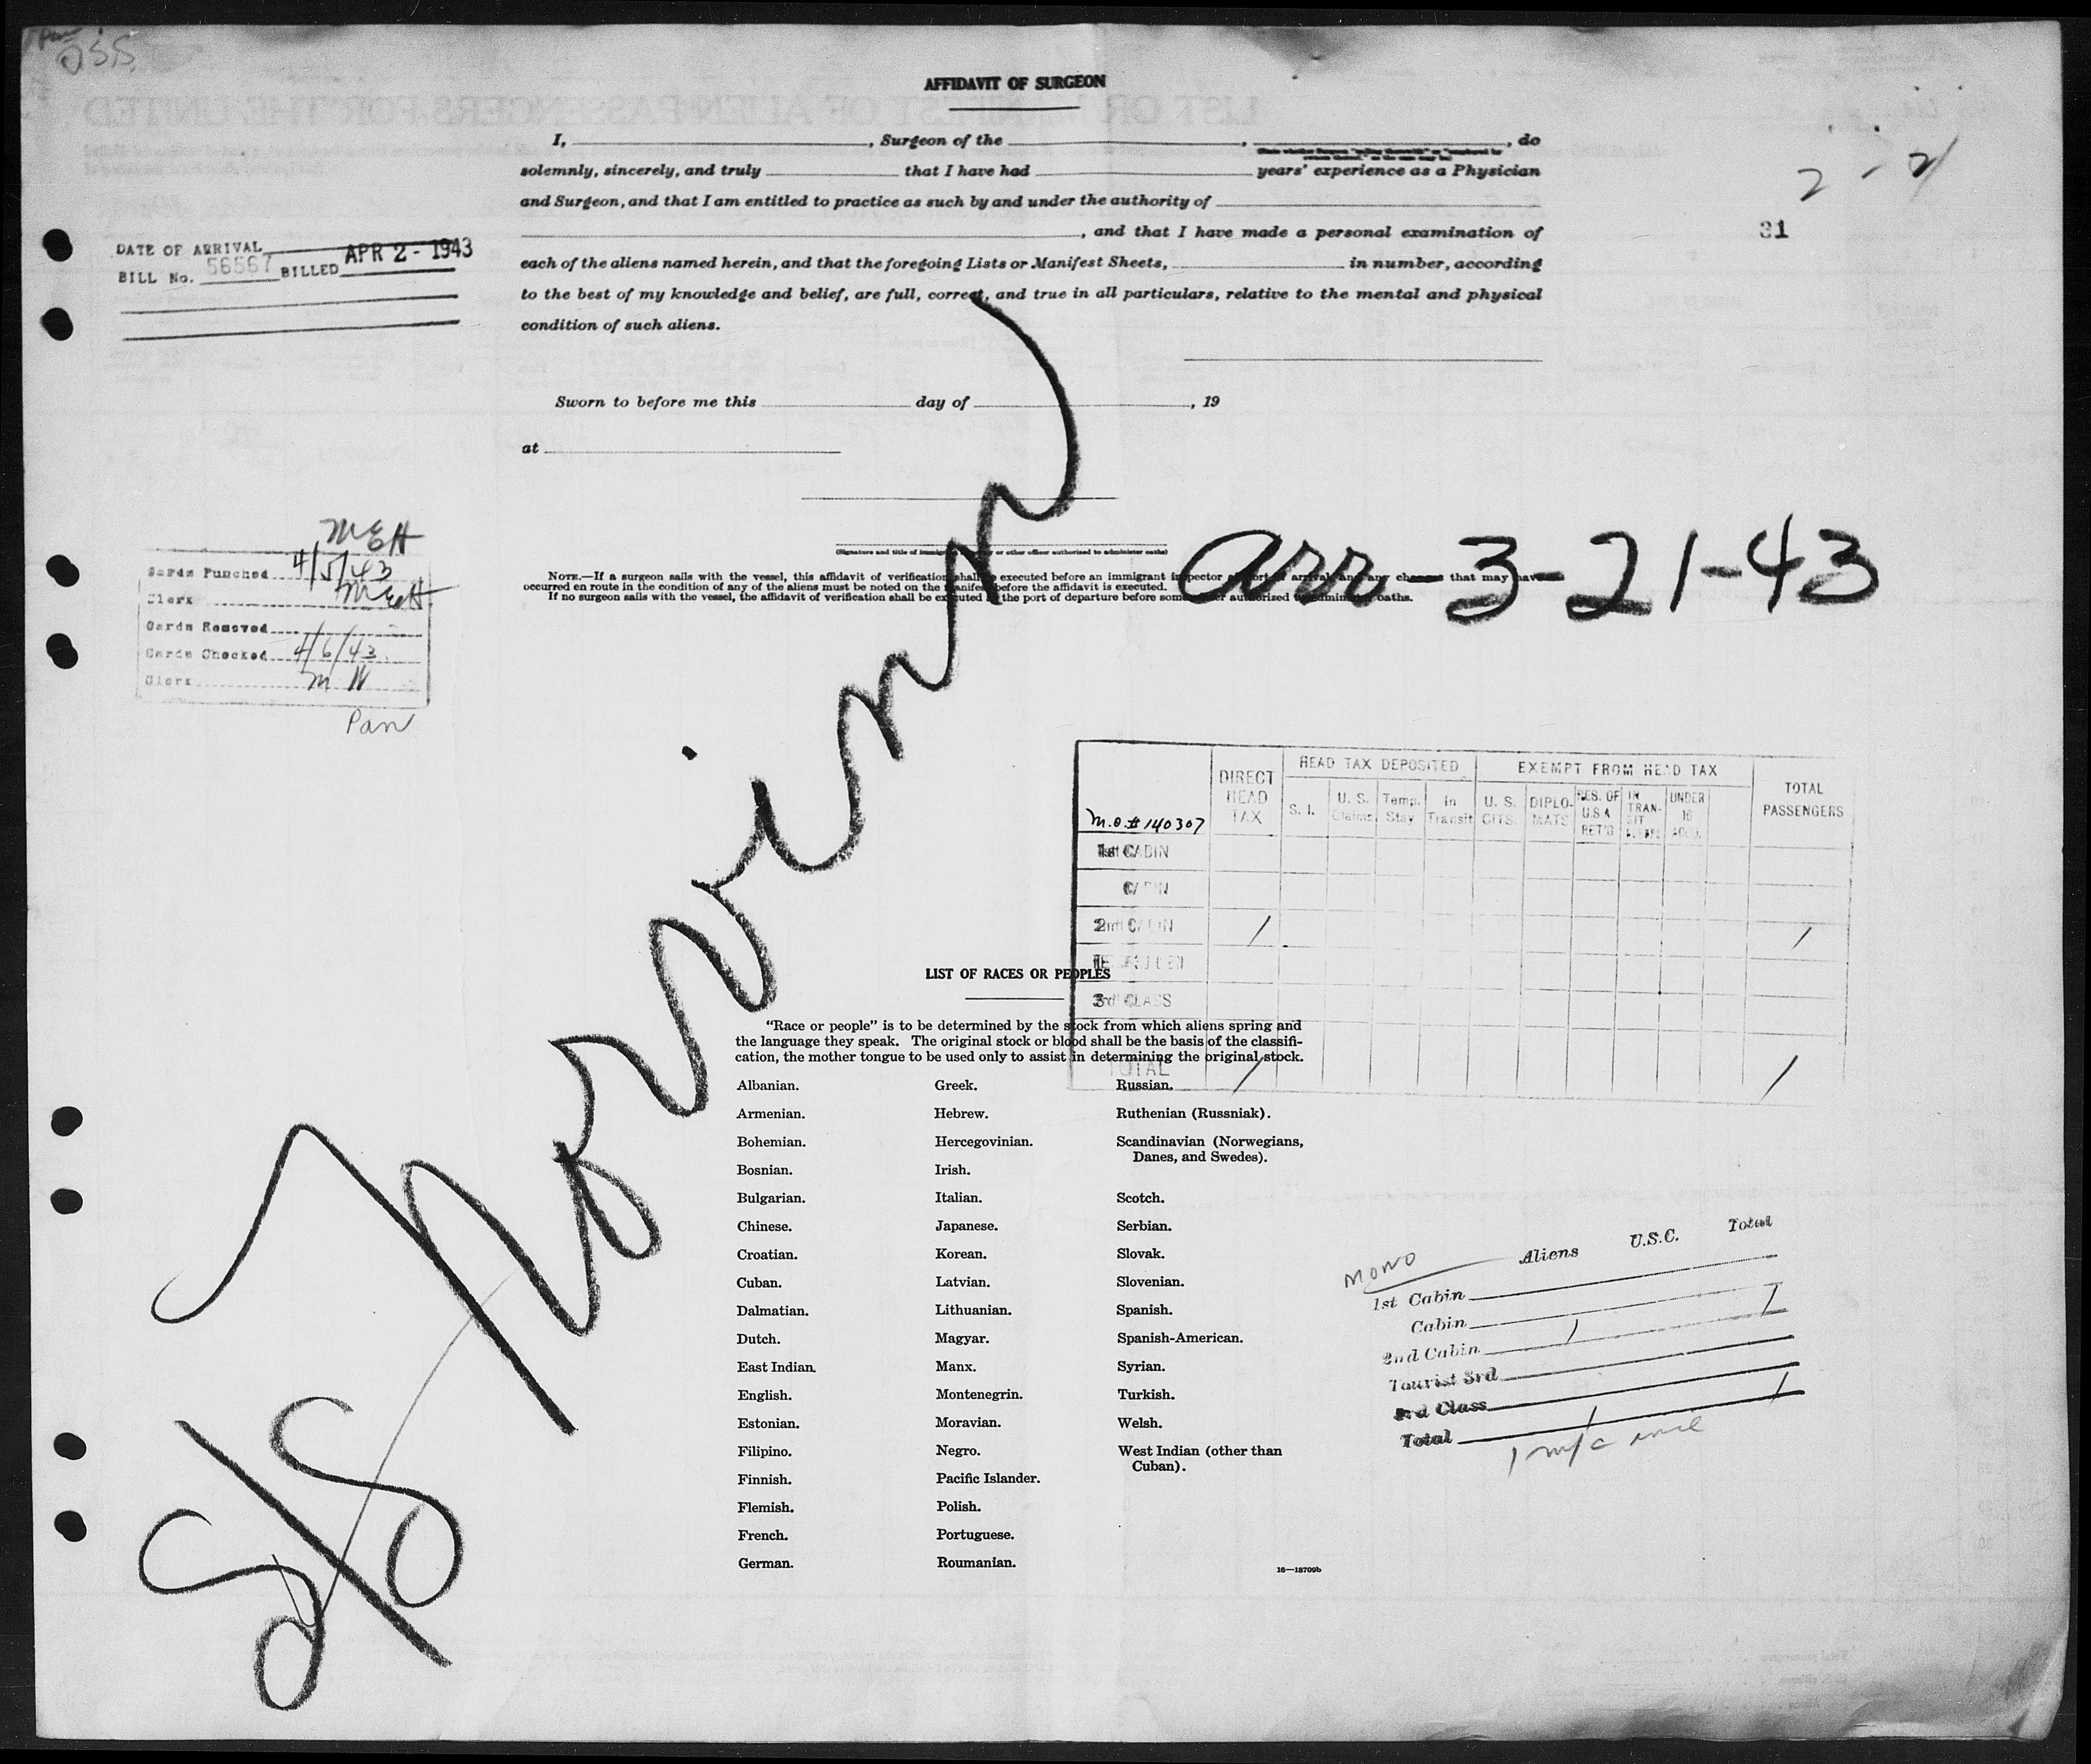 O.S.S.
AFFIDAVIT OF SURGEON
I, , Surgeon of the , , do
solemnly, sincerely, and truly that I have had years' experience as a Physician
and Surgeon, and that I am entitled to practice as such by and under the authority of
, and that I have made a personal examination of
each of the aliens named herein, and that the foregoing Lists or Manifest Sheets, in number, according
to the best of my knowledge and belief, are full, correct, and true in all particulars, relative to the mental and physical
condition of such aliens.
Sworn to before me this day of , 19
at
2 - 2
31
DATE OF ARRIVAL
BILL No. 56567 BILLED APR 2 - 1943
(Signature and title of immigrant inspector or other officer authorized to administer oaths)
NOTE.—If a surgeon sails with the vessel, this affidavit of verification shall be executed before an immigrant inspector at port of arrival and any changes that may have
occurred en route in the condition of any of the aliens must be noted on the manifest before the affidavit is executed.
If no surgeon sails with the vessel, the affidavit of verification shall be executed at the port of departure before some officer authorized to administer oaths.
arr 3-21-43
MEH
Cards Punched 4/5/43
Clerk MEH
Cards Removed
Cards Checked 4/6/43
Clerk M N
Pan
S/S
M.O.# 140307
DIRECT HEAD TAX
HEAD TAX DEPOSITED
S. I.
U. S. Claims
Temp. Stay
In Transit
EXEMPT FROM HEAD TAX
U. S. CITS.
DIPLO-MATS
RES. OF U.S.A RET'G
IN TRAN-SIT
UNDER 16
TOTAL PASSENGERS
1st CABIN
CABIN
2nd CABIN / /
3rd CLASS
TOTAL / /
LIST OF RACES OR PEOPLES
"Race or people" is to be determined by the stock from which aliens spring and
the language they speak. The original stock or blood shall be the basis of the classifi-
cation, the mother tongue to be used only to assist in determining the original stock.
Albanian.
Armenian.
Bohemian.
Bosnian.
Bulgarian.
Chinese.
Croatian.
Cuban.
Dalmatian.
Dutch.
East Indian.
English.
Estonian.
Filipino.
Finnish.
Flemish.
French.
German.
Greek.
Hebrew.
Hercegovinian.
Irish.
Italian.
Japanese.
Korean.
Latvian.
Lithuanian.
Magyar.
Manx.
Montenegrin.
Moravian.
Negro.
Pacific Islander.
Polish.
Portuguese.
Roumanian.
Russian.
Ruthenian (Russniak).
Scandinavian (Norwegians,
Danes, and Swedes).
Scotch.
Serbian.
Slovak.
Slovenian.
Spanish.
Spanish-American.
Syrian.
Turkish.
Welsh.
West Indian (other than
Cuban).
16—18709b
MONO Aliens U.S.C. Total
1st Cabin
Cabin 1
2nd Cabin 1
Tourist 3rd
3rd Class 1
Total 1